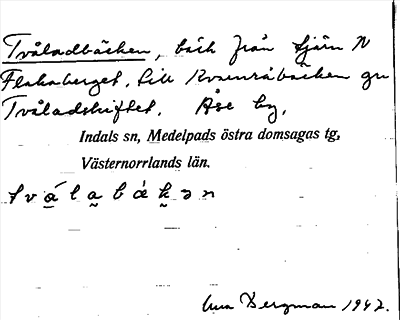 Tvåladbäcken, bäck från tjärn N
Flakaberget, till Kvarnåbäcken gm
Tvåladskiftet. Åse by,
Indals sn, Medelpads östra domsagas tg,
Västernorrlands län.
Bergman 1942.